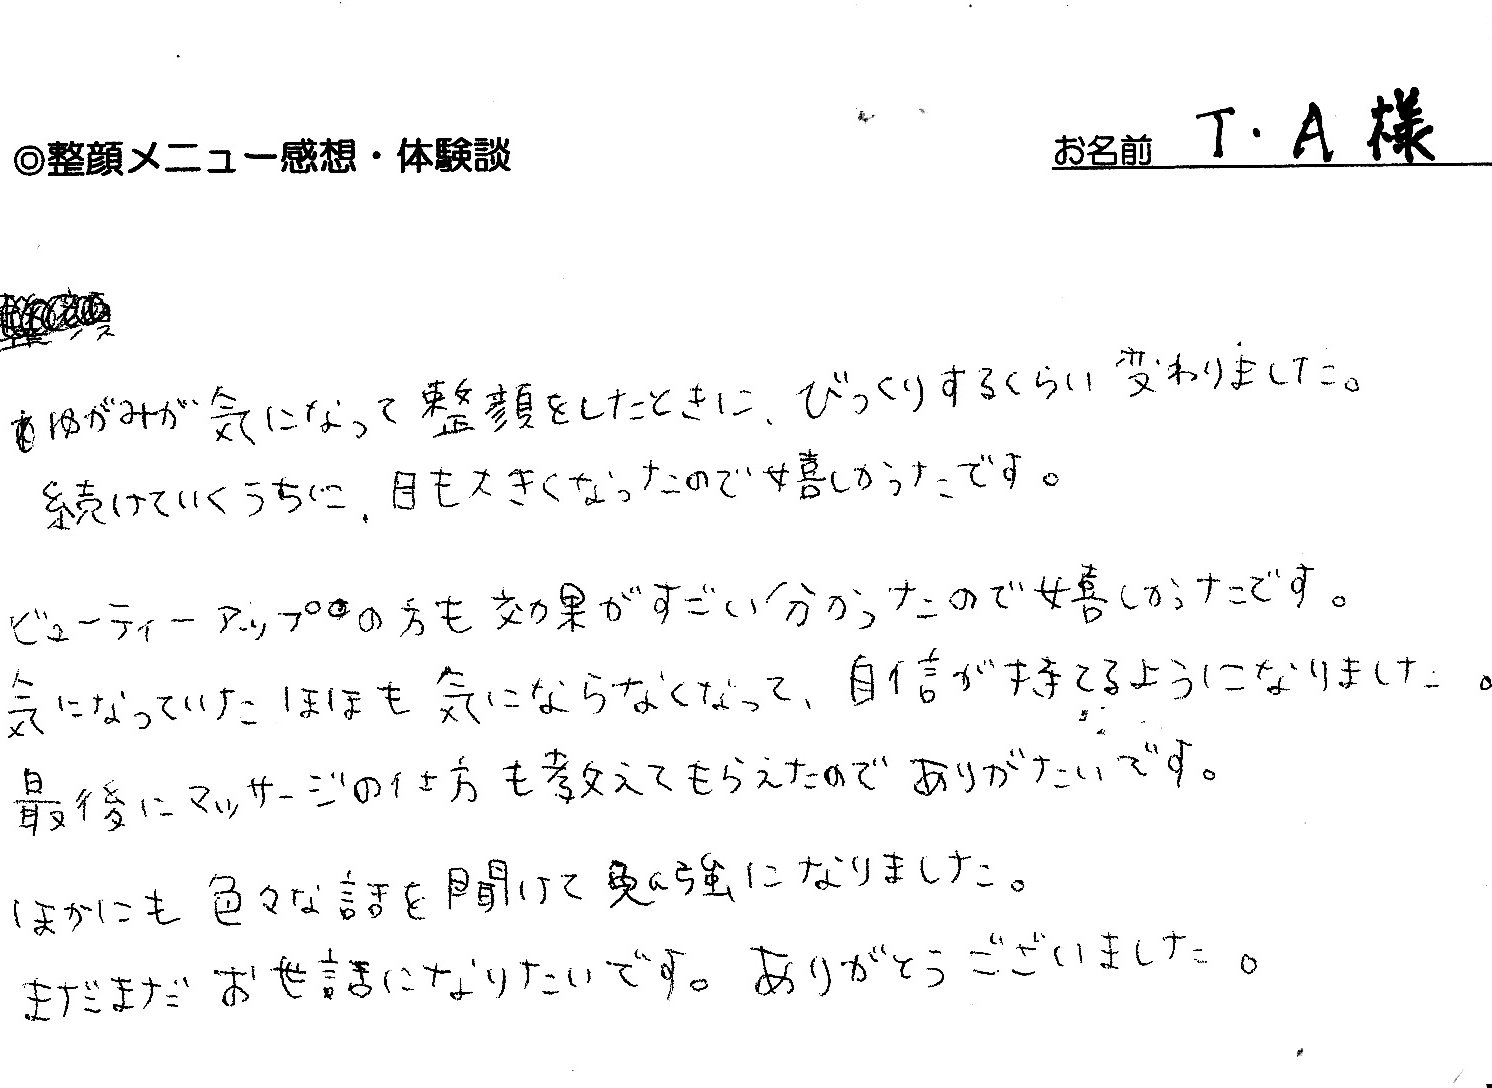 ◎整顔メニュー感想・体験談
お名前 T・A様
ゆがみが気になって整顔をしたときに、びっくりするくらい変わりました。
続けていくうちに、目も大きくなったので嬉しかったです。
ビューティーアップの方も効果がすごい分かったので嬉しかったです。
気になっていたほほも気にならなくなって、自信がもてるようになりました。
最後にマッサージの仕方も教えてもらえたのでありがたいです。
ほかにも色々な話を聞けて勉強になりました。
まだまだお世話になりたいです。ありがとうございました。